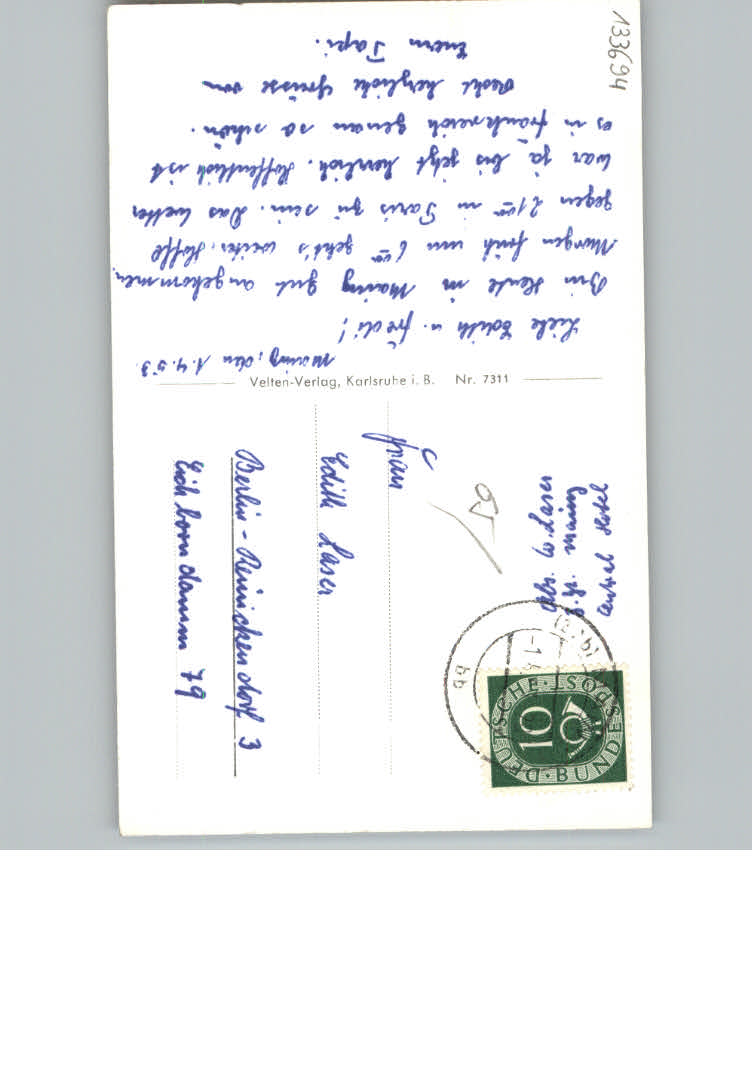 Mainz, den 1.4.53.
Liebe Edith u. Fredi!
Bin Heute in Mainz gut angekommen.
Morgen früh um 6 00 geht's weiter. Hoffe
gegen 21 00 in Paris zu sein. Das Wetter
war ja bis jetzt herrlich. Hoffentlich ist
es in Frankreich genau so schön.
Recht herzliche Grüsse von
Euern Papi.
Velten-Verlag, Karlsruhe i. B. Nr. 7311
Central Hotel
Mainz
Frau
Edith Laser
Berlin-Reinickendorf 3
Eichborndamm 79
DEUTSCHE BUNDESPOST
10
133694